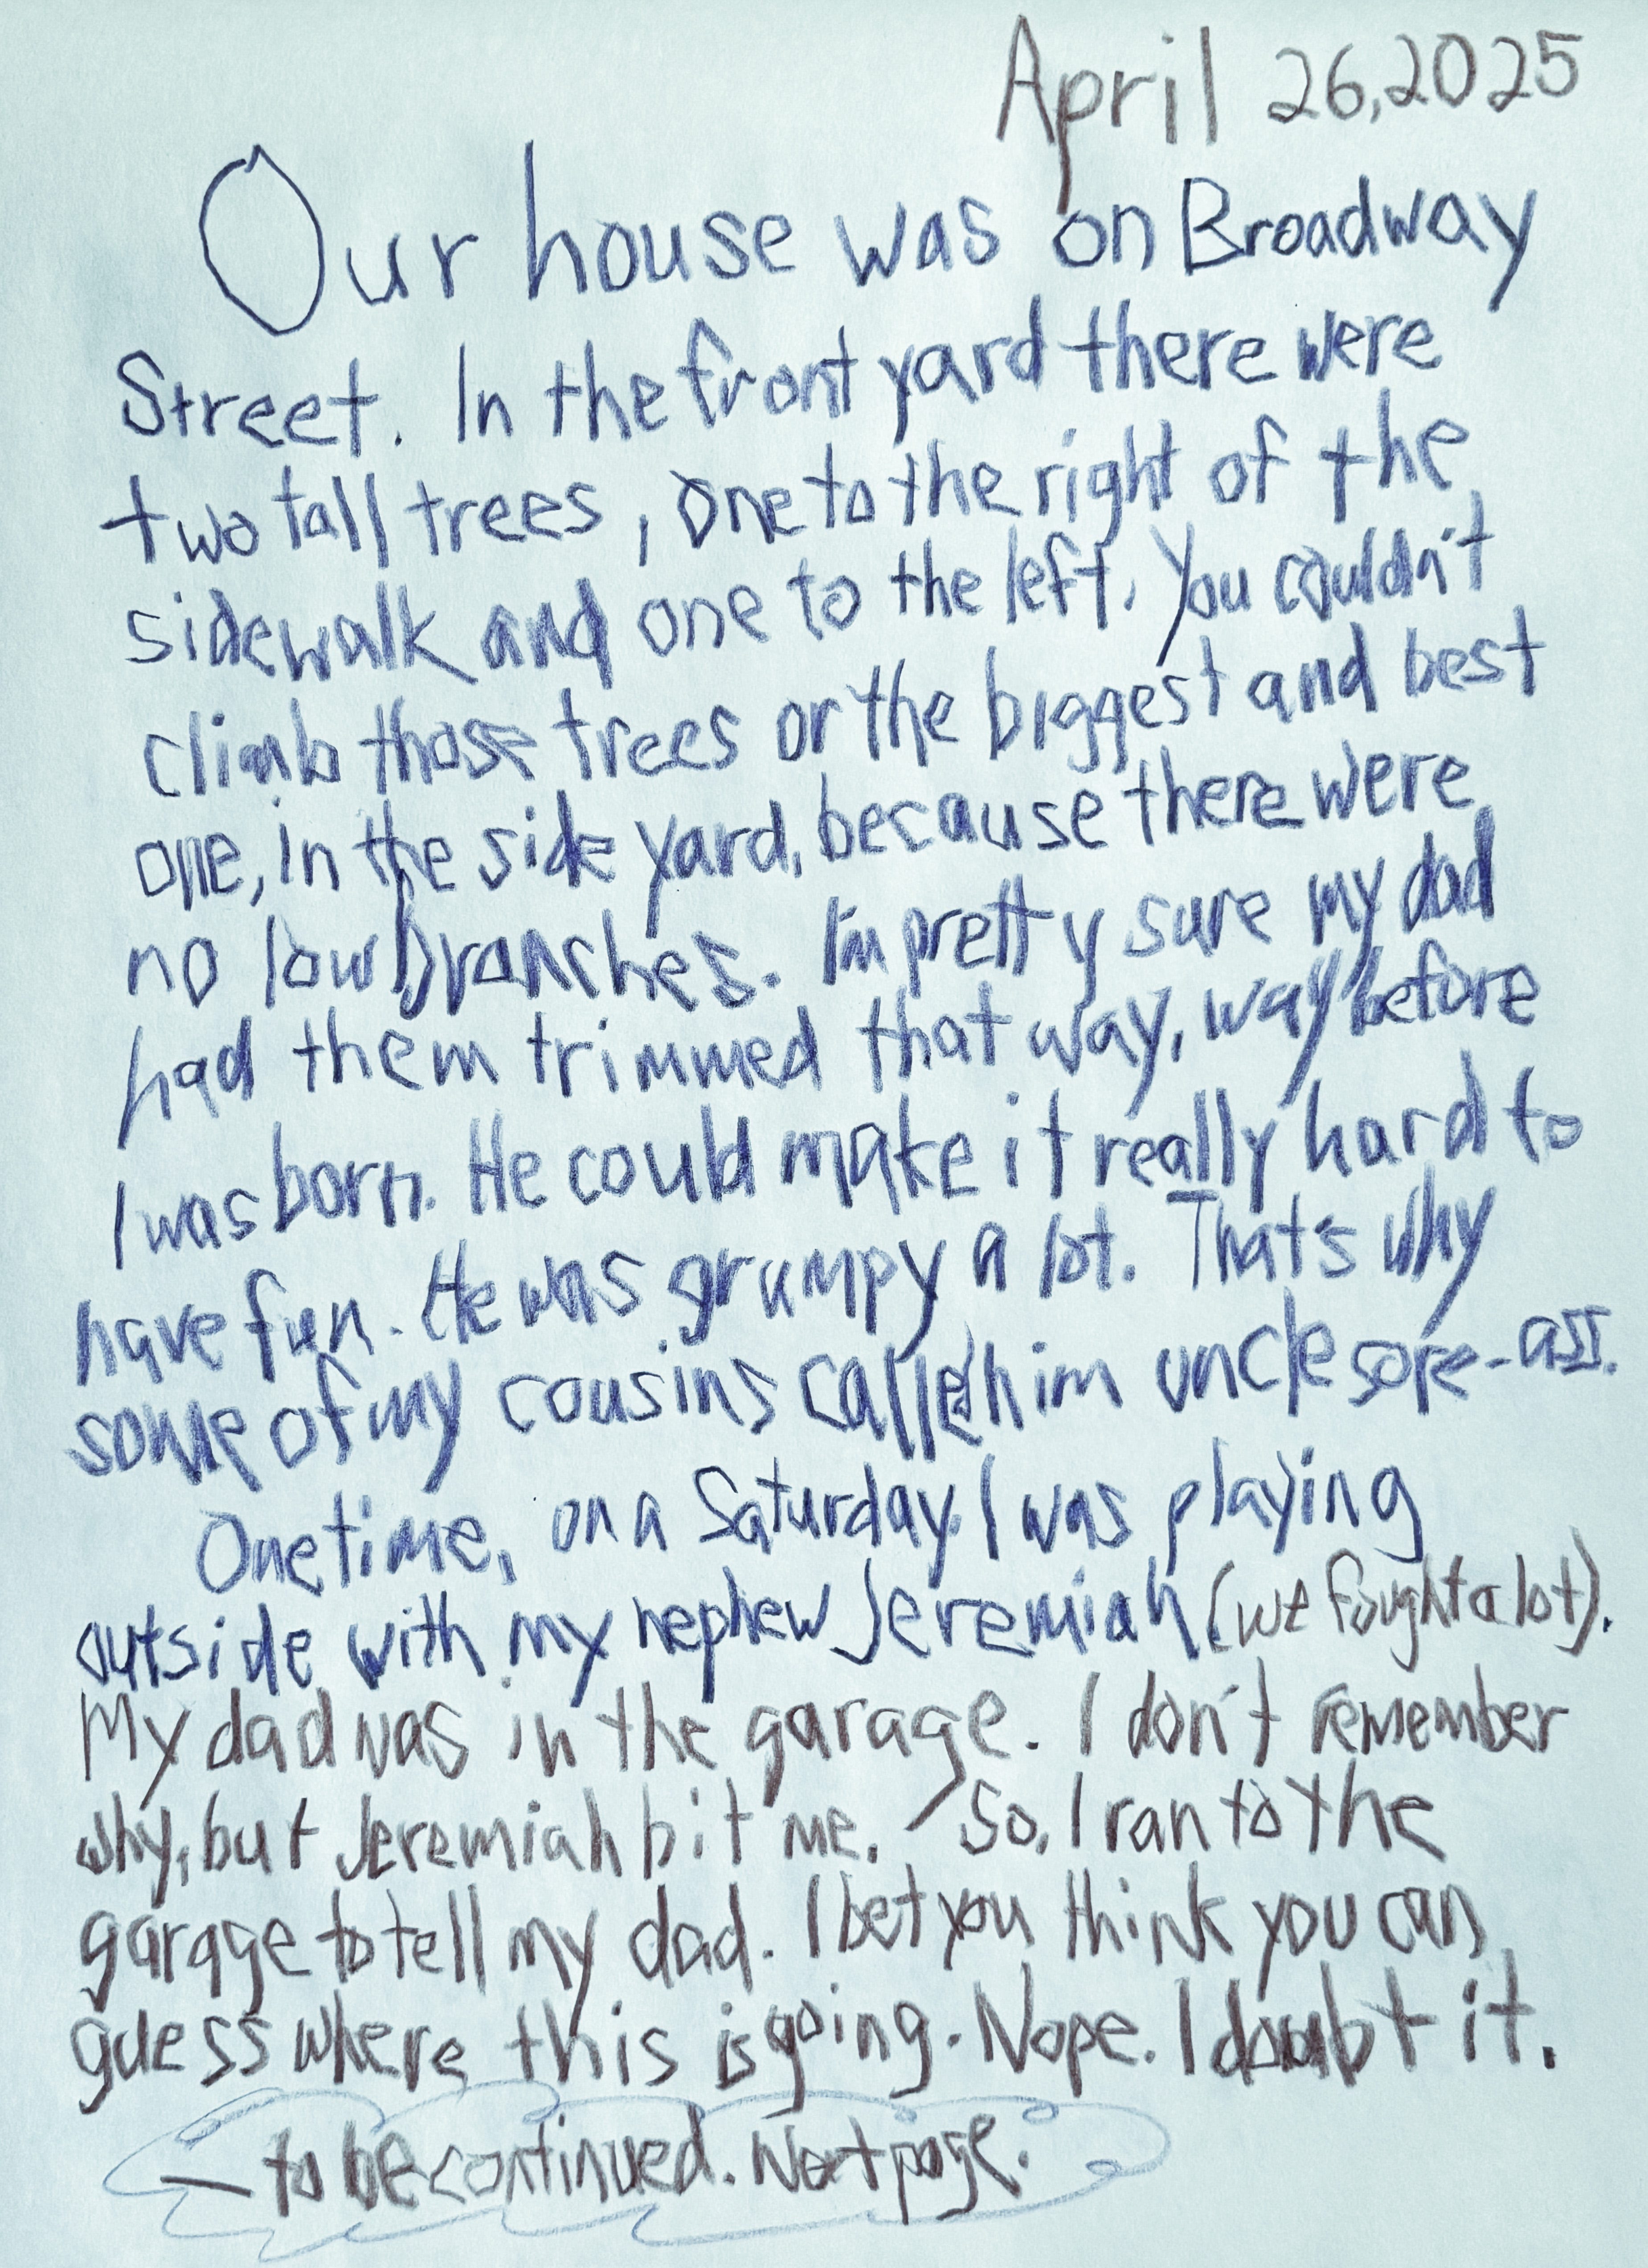 April 26, 2025
Our house was on Broadway
Street. In the front yard there were
two tall trees, one to the right of the
sidewalk and one to the left. You couldn't
climb those trees or the biggest and best
one, in the side yard, because there were
no low branches. I'm pretty sure my dad
had them trimmed that way, way before
I was born. He could make it really hard to
have fun. He was grumpy a lot. That's why
some of my cousins called him uncle sore-ass.
One time, on a Saturday, I was playing
outside with my nephew Jeremiah (we fought a lot).
My dad was in the garage. I don't remember
why, but Jeremiah bit me. So, I ran to the
garage to tell my dad. I bet you think you can
guess where this is going. Nope. I doubt it.
— to be continued. Next page.